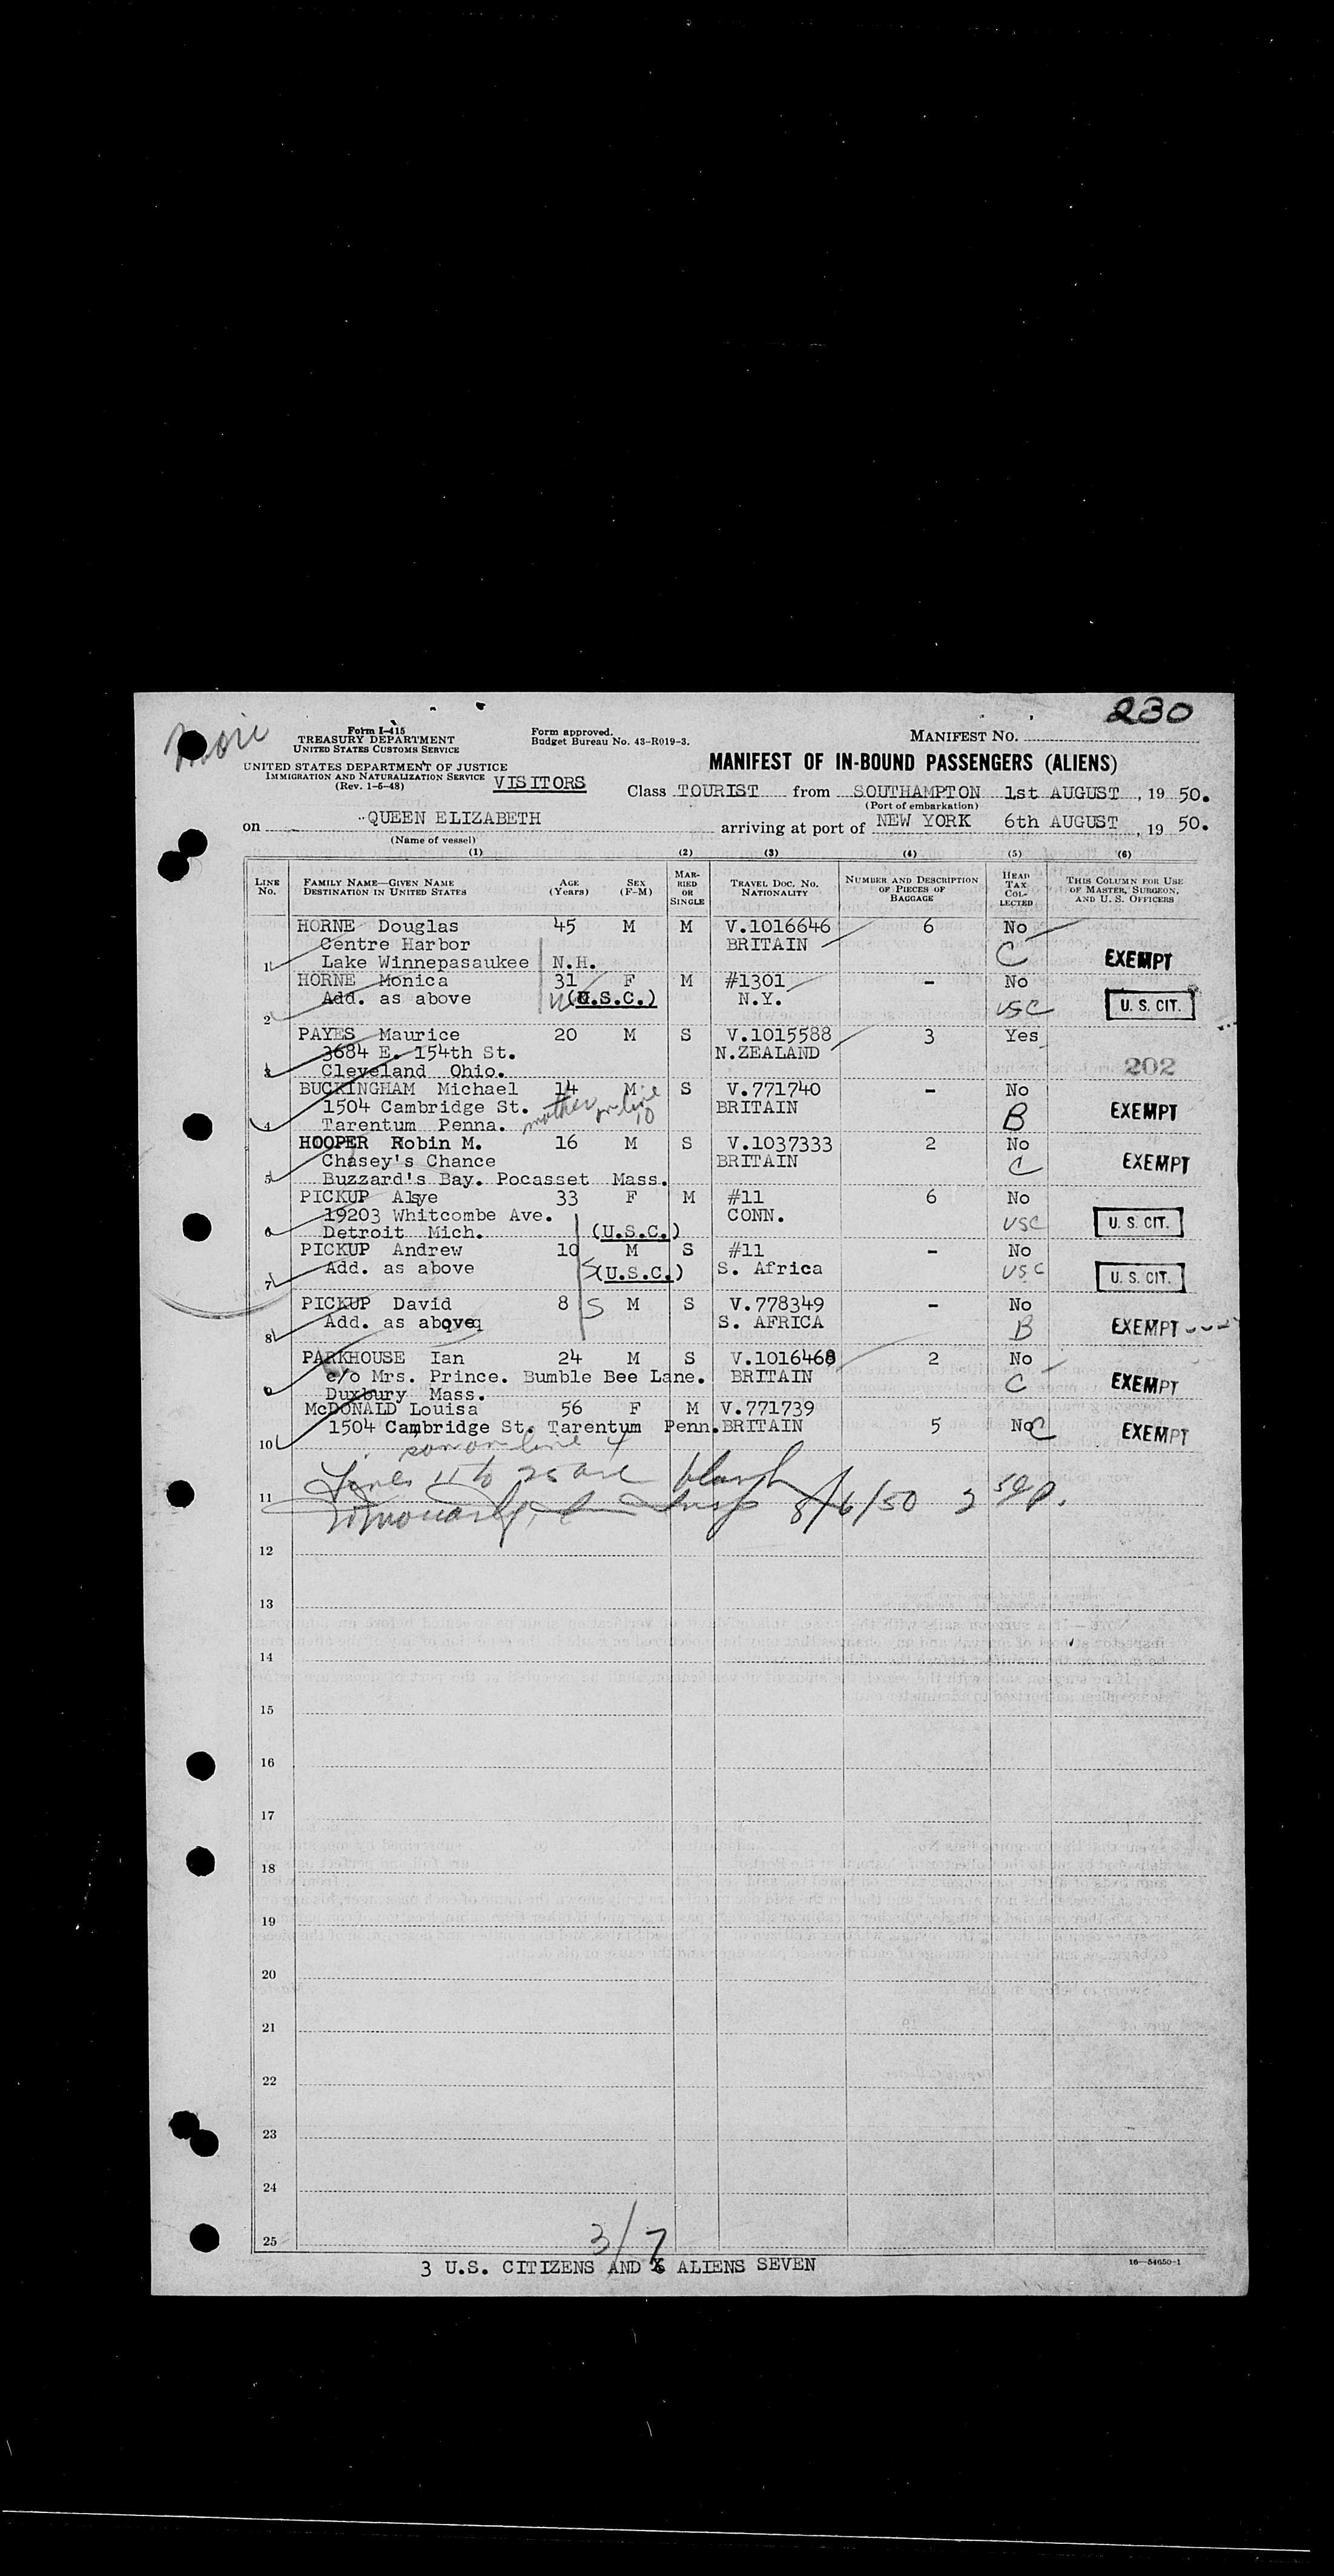 230
more
Form I-415
TREASURY DEPARTMENT
UNITED STATES CUSTOMS SERVICE
Form approved.
Budget Bureau No. 43-R019-3.
MANIFEST NO.
UNITED STATES DEPARTMENT OF JUSTICE
IMMIGRATION AND NATURALIZATION SERVICE
(Rev. 1-5-48)
VISITORS
MANIFEST OF IN-BOUND PASSENGERS (ALIENS)
Class TOURIST from SOUTHAMPTON 1st AUGUST, 19 50.
(Port of embarkation)
on QUEEN ELIZABETH arriving at port of NEW YORK 6th AUGUST, 19 50.
(Name of vessel)
(1) (2) (3) (4) (5) (6)
LINE NO. FAMILY NAME—GIVEN NAME DESTINATION IN UNITED STATES AGE (Years) SEX (F-M) MARRIED OR SINGLE TRAVEL DOC. NO. NATIONALITY NUMBER AND DESCRIPTION OF PIECES OF BAGGAGE HEAD TAX COLLECTED THIS COLUMN FOR USE OF MASTER, SURGEON, AND U. S. OFFICERS
HORNE Douglas 45 M M V.1016646 6 No
Centre Harbor BRITAIN
1 Lake Winnepasaukee N.H. C EXEMPT
HORNE Monica 31 F M #1301 - No
Add. as above (U.S.C.) N.Y. USC U. S. CIT.
2
PAYES Maurice 20 M S V.1015588 3 Yes
3684 E. 154th St. N.ZEALAND
3 Cleveland Ohio. 202
BUCKINGHAM Michael 14 M S V.771740 - No
1504 Cambridge St. mother on line 10 BRITAIN B EXEMPT
4 Tarentum Penna.
HOOPER Robin M. 16 M S V.1037333 2 No
Chasey's Chance BRITAIN C EXEMPT
5 Buzzard's Bay. Pocasset Mass.
PICKUP Alsye 33 F M #11 6 No
19203 Whitcombe Ave. CONN. USC U. S. CIT.
6 Detroit Mich. (U.S.C.)
PICKUP Andrew 10 M S #11 - No
7 Add. as above S (U.S.C.) S. Africa USC U. S. CIT.
PICKUP David 8 S M S V.778349 - No
8 Add. as above S. AFRICA B EXEMPT
PARKHOUSE Ian 24 M S V.1016468 2 No
c/o Mrs. Prince. Bumble Bee Lane. BRITAIN C EXEMPT
9 Duxbury Mass.
McDONALD Louisa 56 F M V.771739
1504 Cambridge St. Tarentum Penn. BRITAIN 5 No C EXEMPT
10 son on line 4
Lines 11 to 25 are blank
11 Insp 8/6/50
12
13
14
15
16
17
18
19
20
21
22
23
24
25
3/7
3 U.S. CITIZENS AND ALIENS SEVEN
16—54650-1